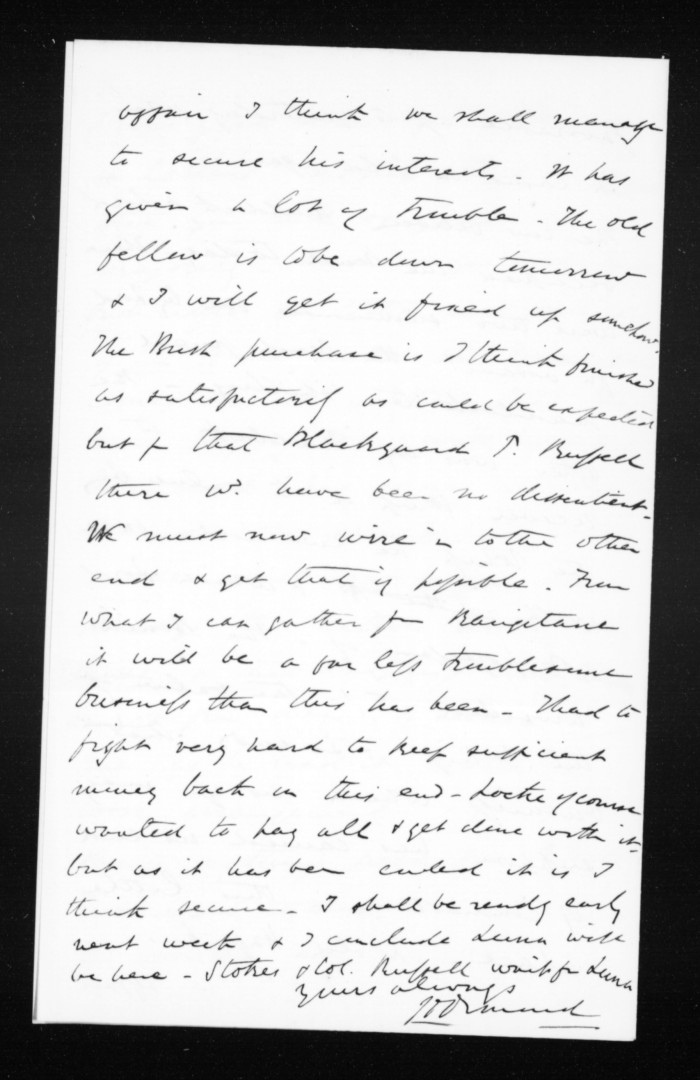 affair I think we shall manage
to secure his interests - It has
given a lot of trouble - The old
fellow is to be down tomorrow
& I will get it fixed up somehow.
The Bush purchase is I think finished
as satisfactorily as could be expected
but for that Blackguard P. Russell
there wd. have been no dissentient -
We must now wire in to the other
end & get that if possible. From
what I can gather fm Rangitane
it will be a far less troublesome
business than this has been - I had to
fight very hard to keep sufficient
money back in this end - Locke of course
wanted to pay all & get done with it -
but as it has been ended it is I
think secure - I shall be ready early
next week & I conclude Luna will
be here - Stokes & Col. Russell wait for Luna
Yours always
JD Ormond